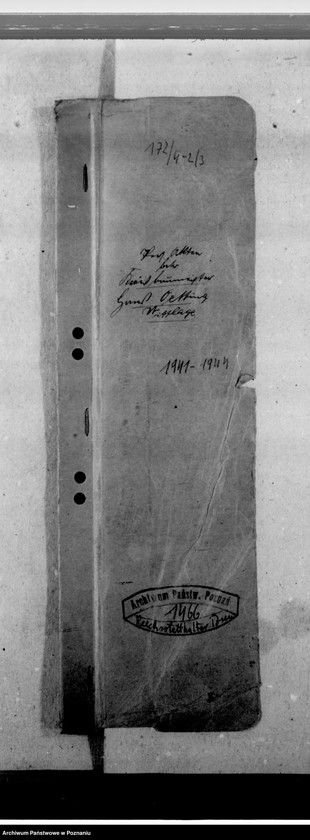 172/4-2/3
Pers. Akten
Kreisbaumeister
Hans Oetting
1941-1944
Archiwum Państw. Poznań
1966
Reichsstatthalter
Archiwum Państwowe w Poznaniu